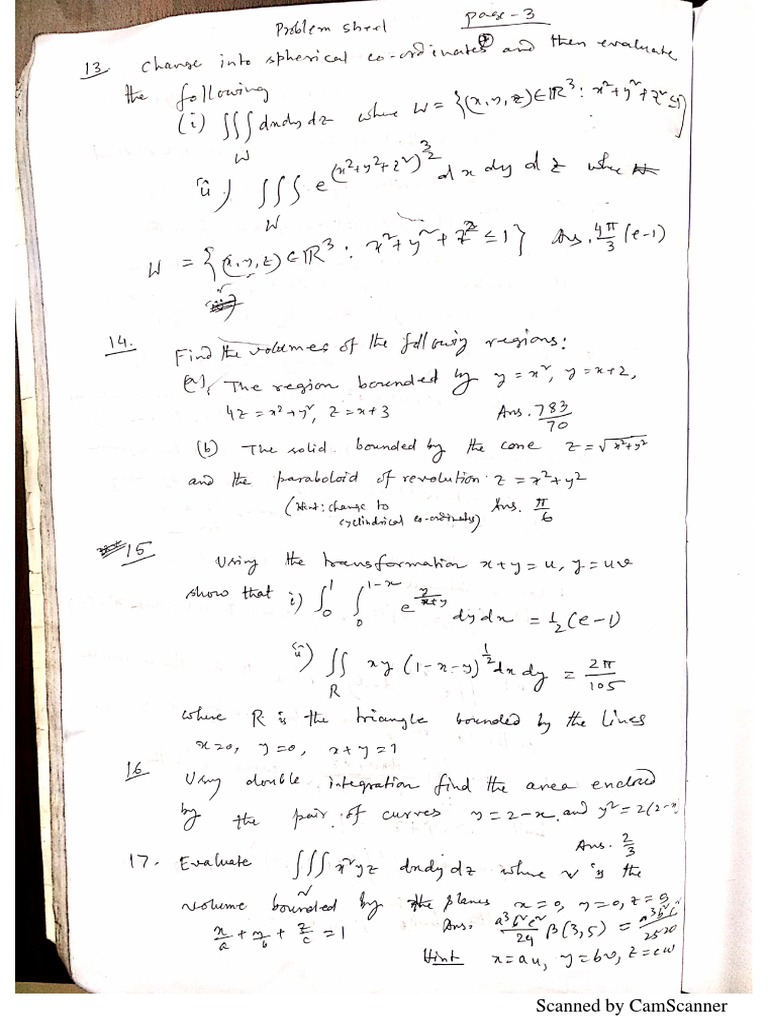 Problem sheet page-3
13 Change into spherical co-ordinates and then evaluate
the following
(i) ∭ dxdydz where W = {(x,y,z)∈ℝ³: x²+y²+z²≤1}
W
ii) ∭ e^(x²+y²+z²)^(3/2) dx dy dz where
W
W = {(x,y,z)∈ℝ³: x²+y²+z²≤1} Ans. 4π/3 (e-1)
14. Find the volumes of the following regions:
(a) The region bounded by y=x², y=x+2,
4z=x²+y², z=x+3 Ans. 783/70
(b) The solid bounded by the cone z=√x²+y²
and the paraboloid of revolution z=x²+y²
(Hint: change to Ans. π/6
cyclindrical co-ordinates)
15 Using the transformation x+y=u, y=uv
show that i) ∫₀¹ ∫₀^(1-x) e^(y/(x+y)) dydx = ½(e-1)
ii) ∬ xy (1-x-y)^(1/2) dx dy = 2π/105
R
where R is the triangle bounded by the lines
x=0, y=0, x+y=1
16 Using double integration find the area enclosed
by the pair of curves y=2-x and y²=2(2-x)
Ans. 2/3
17. Evaluate ∭ x²yz dxdydz where v is the
v
volume bounded by the planes x=0, y=0, z=0,
x/a + y/b + z/c = 1 Ans. a³b²c²/24 β(3,5) = a³b²c²/2520
Hint x=au, y=bv, z=cw
Scanned by CamScanner